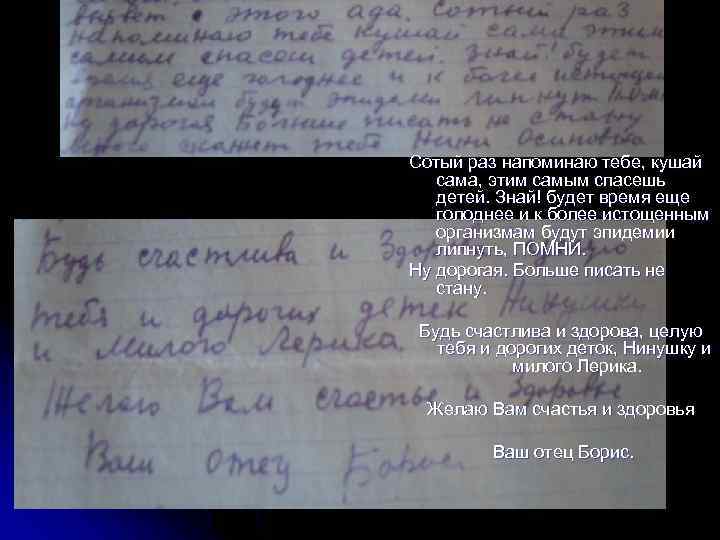 вырвет с этого ада. Сотый раз
напоминаю тебе кушай сама этим
самым спасеш детей. Знай! будет
время еще голоднее и к более истощен
организмам будут эпидемии липнут ПОМН
Ну дорогая Больше писать не стану
много скажет тебе Нина Осиповна
Сотый раз напоминаю тебе, кушай
сама, этим самым спасешь
детей. Знай! будет время еще
голоднее и к более истощенным
организмам будут эпидемии
липнуть, ПОМНИ.
Ну дорогая. Больше писать не
стану.
Будь счастлива и здорова, целую
тебя и дорогих деток, Нинушку и
милого Лерика.
Желаю Вам счастья и здоровья
Ваш отец Борис.
Будь счастлива и Здоро
тебя и дорогих деток Нинушки
и милого Лерика.
Желаю Вам счастье и здоровье
Ваш отец Борис.